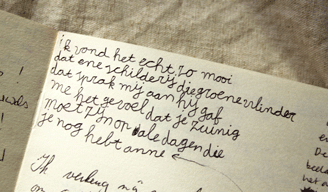 ik vond het echt zo mooi
dat ene schilderij die groene vlinder
dat sprak mij aan hij gaf
me het gevoel dat je zuinig
moet zijn op ale dagen die
je nog hebt anne
Ik